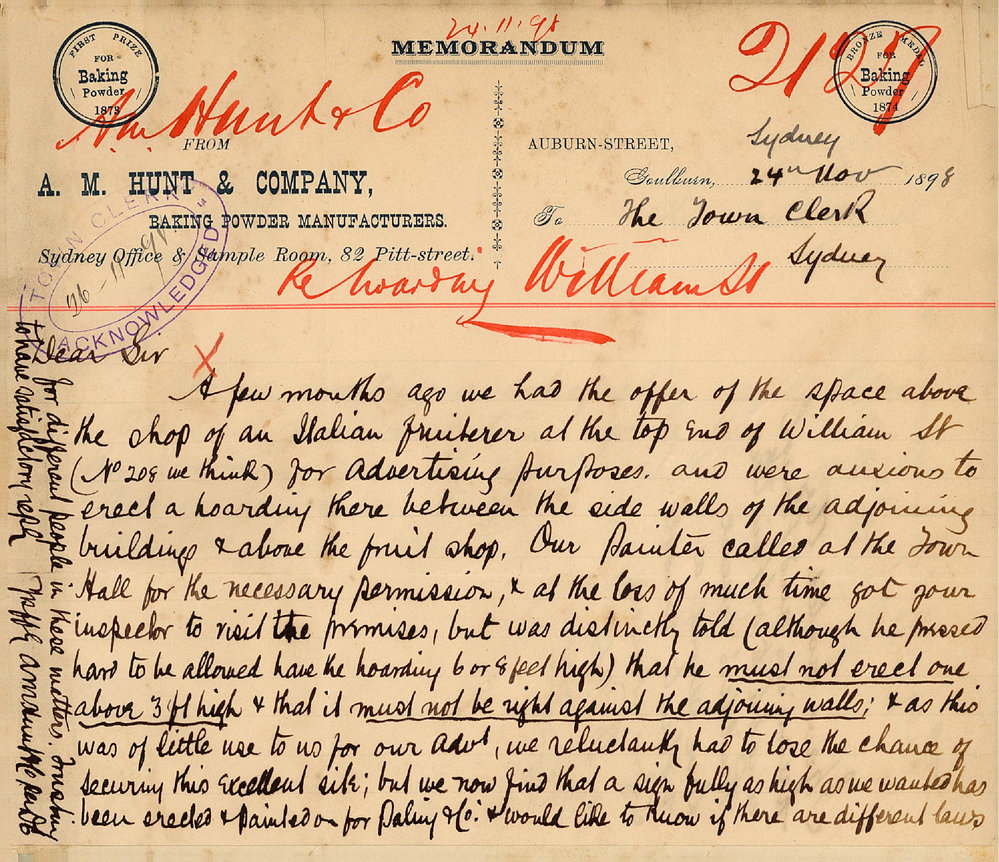 24.11.98
MEMORANDUM
2127
FIRST PRIZE
FOR
Baking
Powder
1879
BRONZE MEDAL
FOR
Baking
Powder
1874
A.M. Hunt & Co
FROM
A. M. HUNT & COMPANY,
BAKING POWDER MANUFACTURERS.
Sydney Office & Sample Room, 82 Pitt-street.
AUBURN-STREET,
Sydney
Goulburn, 24th Nov 1898
To The Town Clerk
Sydney
Re hoarding William St
TOWN CLERK'S
26-11-98
ACKNOWLEDGED
Dear Sir X
A few months ago we had the offer of the space above
the shop of an Italian fruiterer at the top End of William St
(No 208 we think) for advertising purposes. and were anxious to
erect a hoarding there between the side walls of the adjoining
buildings & above the fruit shop. Our Painter called at the Town
Hall for the necessary permission, & at the loss of much time got your
inspector to visit the premises, but was distinctly told (although he pressed
hard to be allowed have the hoarding 6 or 8 feet high) that he must not erect one
above 3 ft high & that it must not be right against the adjoining walls; & as this
was of little use to us for our Advt, we reluctantly had to lose the chance of
securing this Excellent site; but we now find that a sign fully as high as we wanted has
been erected & Painted on for Paling & Co. & would like to know if there are different laws
for different people in these matters. Trusting
to have satisfactory reply